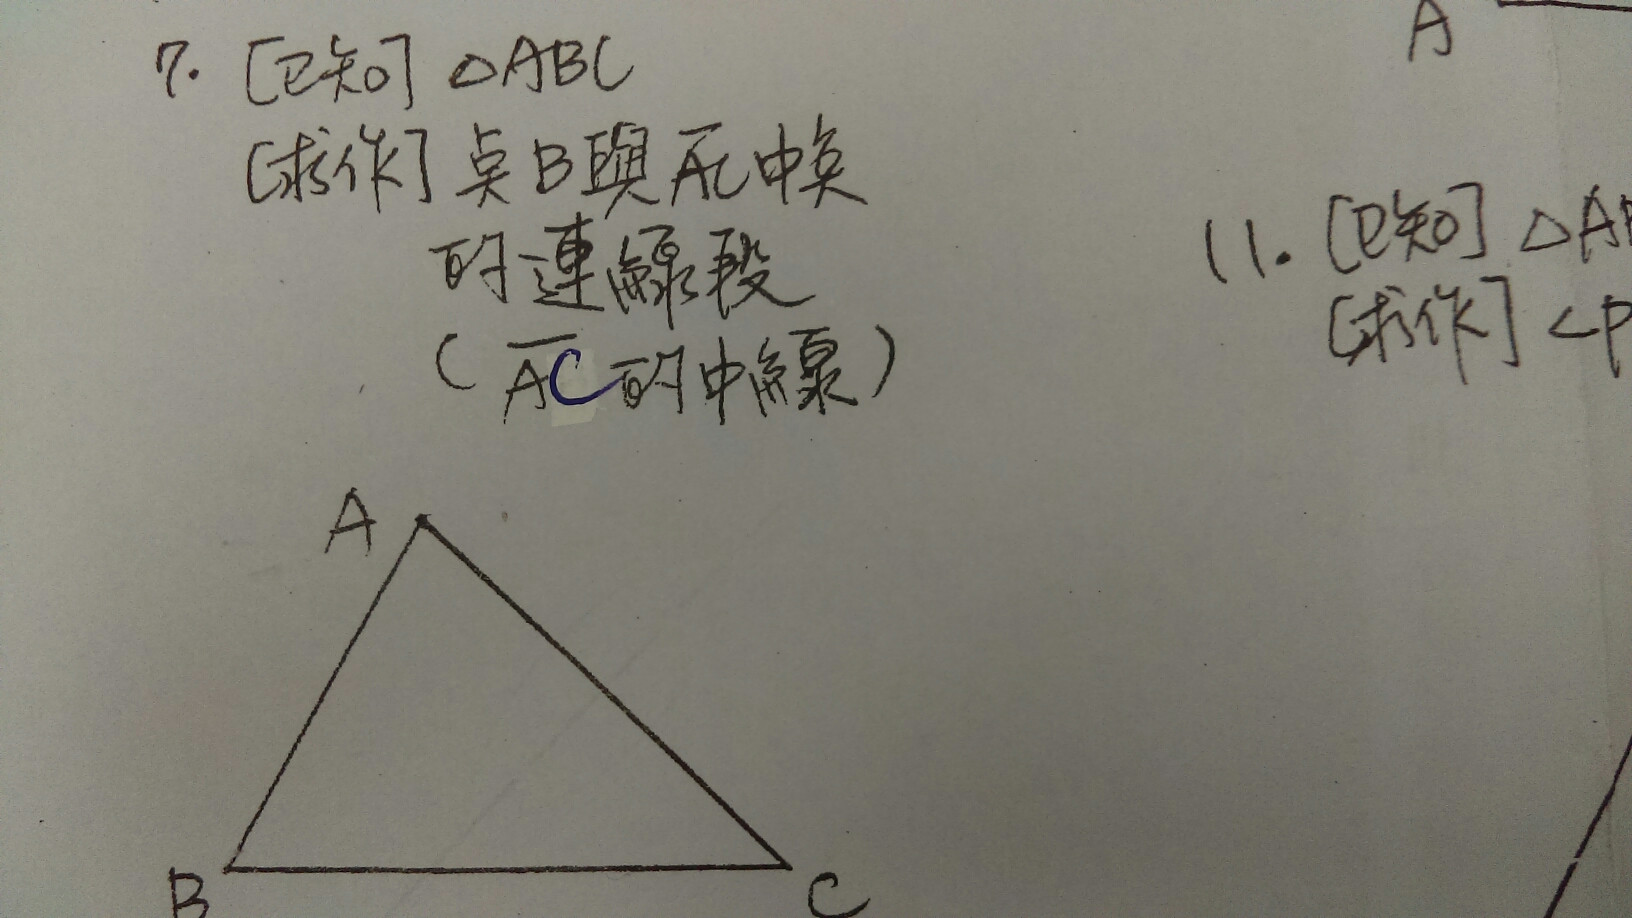 7. [已知] △ABC
[求作] 点B與AC中点
的連線段
(AC的中線)
A
B
C
A
11. [已知] △AB
[求作] ∠P